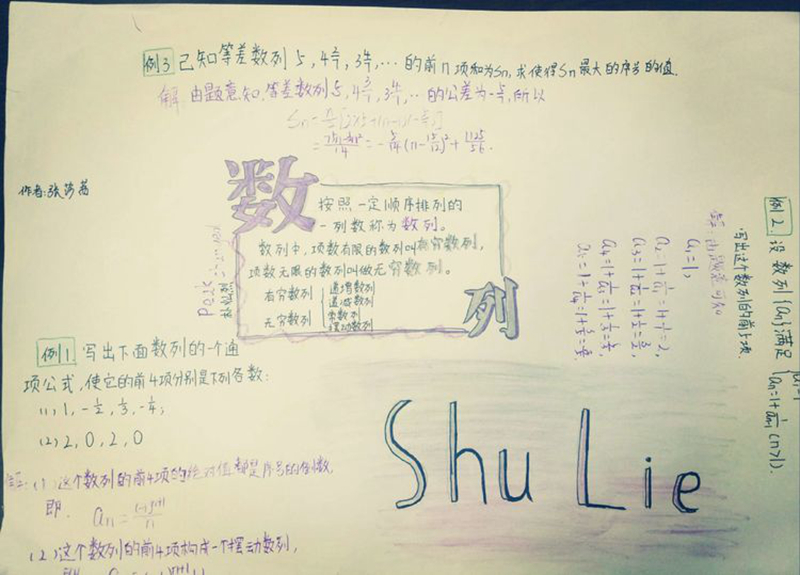 例3 已知等差数列 5, 4 2/7, 3 4/7, … 的前n项和为Sn, 求使得Sn最大的序号的值.
解 由题意知, 等差数列 5, 4 2/7, 3 4/7, … 的公差为 -5/7, 所以
Sn = n/2 [2×5+(n-1)(-5/7)]
= (75n-5n²)/14 = -5/14 (n-15/2)² + 1125/56.
作者:张
数
按照一定顺序排列的
一列数称为数列。
数列中,项数有限的数列叫有穷数列,
项数无限的数列叫做无穷数列。
有穷数列 递增数列
递减数列
无穷数列 常数列
摆动数列
列
例1. 写出下面数列的一个通
项公式,使它的前4项分别是下列各数:
(1) 1, -1/2, 1/3, -1/4;
(2) 2, 0, 2, 0
解:(1)这个数列的前4项的绝对值都是序号的倒数,
即. an = (-1)ⁿ⁺¹/n
(2)这个数列的前4项构成一个摆动数列,
例2. 设数列{an}满足
a1=1
an=1+1/an-1 (n>1).
写出这个数列的前5项.
解 由题意可知
a1=1,
a2=1+1/a1=1+1/1=2,
a3=1+1/a2=1+1/2=3/2,
a4=1+1/a3=1+2/3=5/3,
a5=1+1/a4=1+3/5=8/5.
Shu Lie